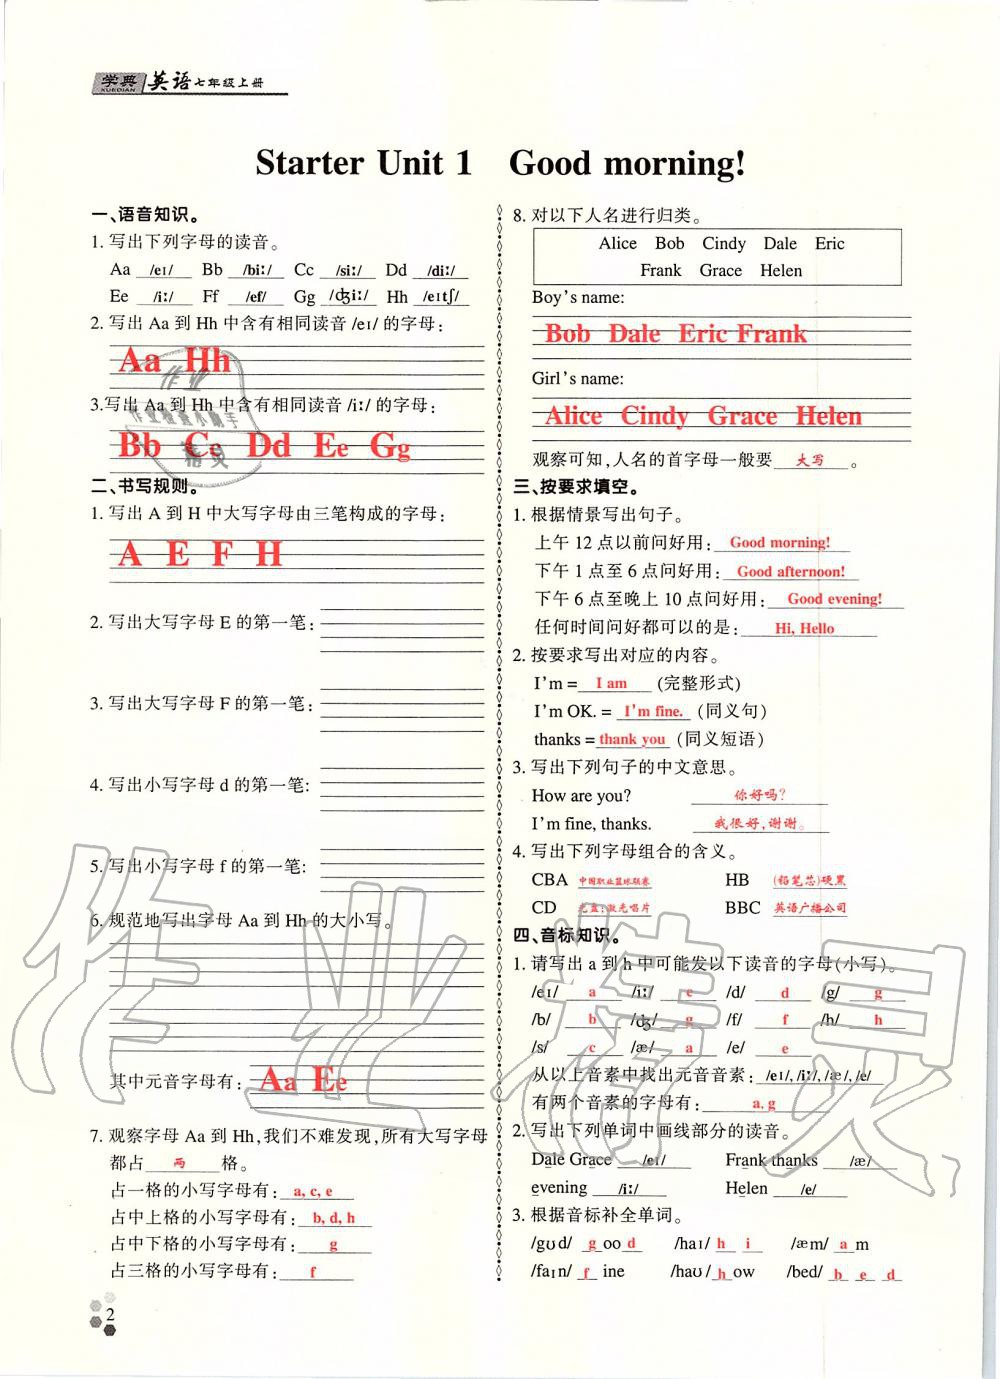 学典 XUEDIAN 英语七年级上册
Starter Unit 1 Good morning!
一、语音知识。
1. 写出下列字母的读音。
Aa /eɪ/ Bb /biː/ Cc /siː/ Dd /diː/
Ee /iː/ Ff /ef/ Gg /ʤiː/ Hh /eɪtʃ/
2. 写出 Aa 到 Hh 中含有相同读音 /eɪ/ 的字母:
Aa Hh
3.写出 Aa 到 Hh 中含有相同读音 /iː/ 的字母:
Bb Cc Dd Ee Gg
二、书写规则。
1. 写出 A 到 H 中大写字母由三笔构成的字母:
A E F H
2. 写出大写字母 E 的第一笔:
3. 写出大写字母 F 的第一笔:
4. 写出小写字母 d 的第一笔:
5. 写出小写字母 f 的第一笔:
6. 规范地写出字母 Aa 到 Hh 的大小写。
其中元音字母有: Aa Ee
7. 观察字母 Aa 到 Hh,我们不难发现,所有大写字母
都占 两 格。
占一格的小写字母有: a, c, e
占中上格的小写字母有: b, d, h
占中下格的小写字母有: g
占三格的小写字母有: f
2
8. 对以下人名进行归类。
Alice Bob Cindy Dale Eric
Frank Grace Helen
Boy's name:
Bob Dale Eric Frank
Girl's name:
Alice Cindy Grace Helen
观察可知,人名的首字母一般要 大写 。
三、按要求填空。
1. 根据情景写出句子。
上午 12 点以前问好用: Good morning!
下午 1 点至 6 点问好用: Good afternoon!
下午 6 点至晚上 10 点问好用: Good evening!
任何时间问好都可以的是: Hi, Hello
2. 按要求写出对应的内容。
I'm = I am (完整形式)
I'm OK. = I'm fine. (同义句)
thanks = thank you (同义短语)
3. 写出下列句子的中文意思。
How are you? 你好吗?
I'm fine, thanks. 我很好,谢谢。
4. 写出下列字母组合的含义。
CBA 中国职业篮球联赛 HB (铅笔芯)硬黑
CD 光盘;激光唱片 BBC 英语广播公司
四、音标知识。
1. 请写出 a 到 h 中可能发以下读音的字母(小写)。
/eɪ/ a /iː/ e /d/ d /g/ g
/b/ b /ʤ/ g /f/ f /h/ h
/s/ c /æ/ a /e/ e
从以上音素中找出元音音素: /eɪ/, /iː/, /æ/, /e/
有两个音素的字母有: a, g
2. 写出下列单词中画线部分的读音。
Dale Grace /eɪ/ Frank thanks /æ/
evening /iː/ Helen /e/
3. 根据音标补全单词。
/gʊd/ g oo d /haɪ/ h i /æm/ a m
/faɪn/ f ine /haʊ/ h ow /bed/ b e d
作业精灵
作业
作业检查小助手
精灵